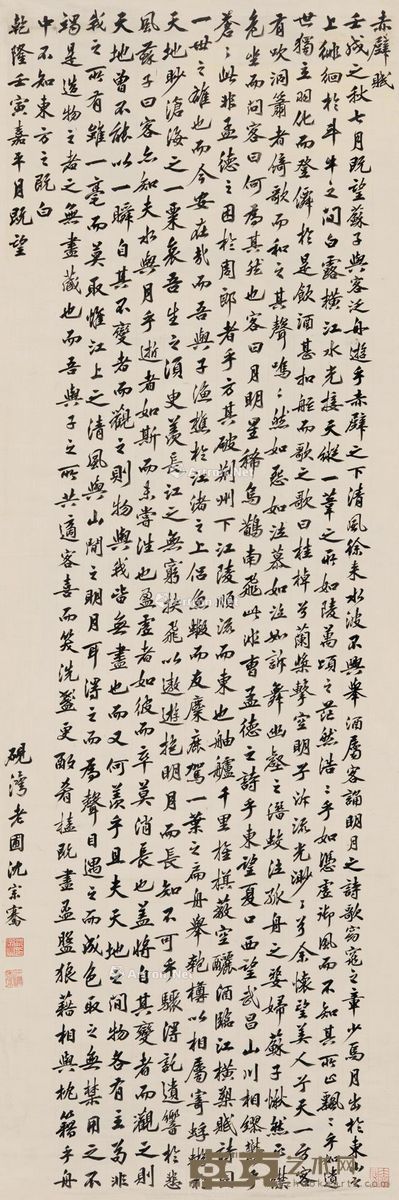 赤壁賦
壬戌之秋七月既望蘇子與客泛舟遊乎赤壁之下清風徐來水波不興舉酒屬客誦明月之詩歌窈窕之章少焉月出於東山之
上徘徊於斗牛之間白露橫江水光接天縱一葦之所如陵萬頃之茫然浩浩乎如憑虛御風而不知其所止飄飄乎如遺
世獨立羽化而登僊於是飲酒甚扣舷而歌之歌曰桂棹兮蘭槳擊空明兮泝流光渺渺兮余懷望美人兮天一方客
有吹洞簫者倚歌而和之其聲嗚嗚然如怨如泣慕如泣如訴舞幽壑之潛蛟泣孤舟之嫠婦蘇子愀然正襟
危坐而問客曰何為其然也客曰月明星稀烏鵲南飛此非曹孟德之詩乎東望夏口西望武昌山川相繆鬱乎
蒼蒼此非孟德之困於周郎者乎方其破荊州下江陵順流而東也舳艫千里旌旗蔽空釃酒臨江橫槊賦詩固
一世之雄也而今安在哉而吾與子漁樵於江渚之上侶魚蝦而友麋鹿駕一葉之扁舟舉匏樽以相屬寄蜉蝣於
天地眇滄海之一粟哀吾生之須臾羨長江之無窮挾飛以遨遊抱明月而長知不可乎驟得託遺響於悲
風蘇子曰客亦知夫水與月乎逝者如斯而未嘗往也盈虛者如彼而卒莫消長也蓋將自其變者而觀之則
天地曾不能以一瞬自其不變者而觀之則物與我皆無盡也而又何羨乎且夫天地之間物各有主苟非
我之所有雖一毫而莫取惟江上之清風與山間之明月耳得之而為聲目遇之而成色取之無禁用之不
竭是造物之者之無盡藏也而吾與子之所共適客喜而笑洗盞更酌肴核既盡盃盤狼藉相與枕籍乎舟
中不知東方之既白
乾隆壬寅嘉平月既望
硯灣老圃沈宗騫